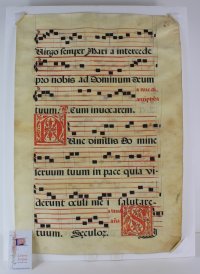 Virgo semper Mari a intercede
pro nobis ad Dominum deum
tuum. Cum invocarem.
Nunc dimittis Do mine
servum tuum in pace quia vi
derunt oculi me i salutare
tuum. Seculor.